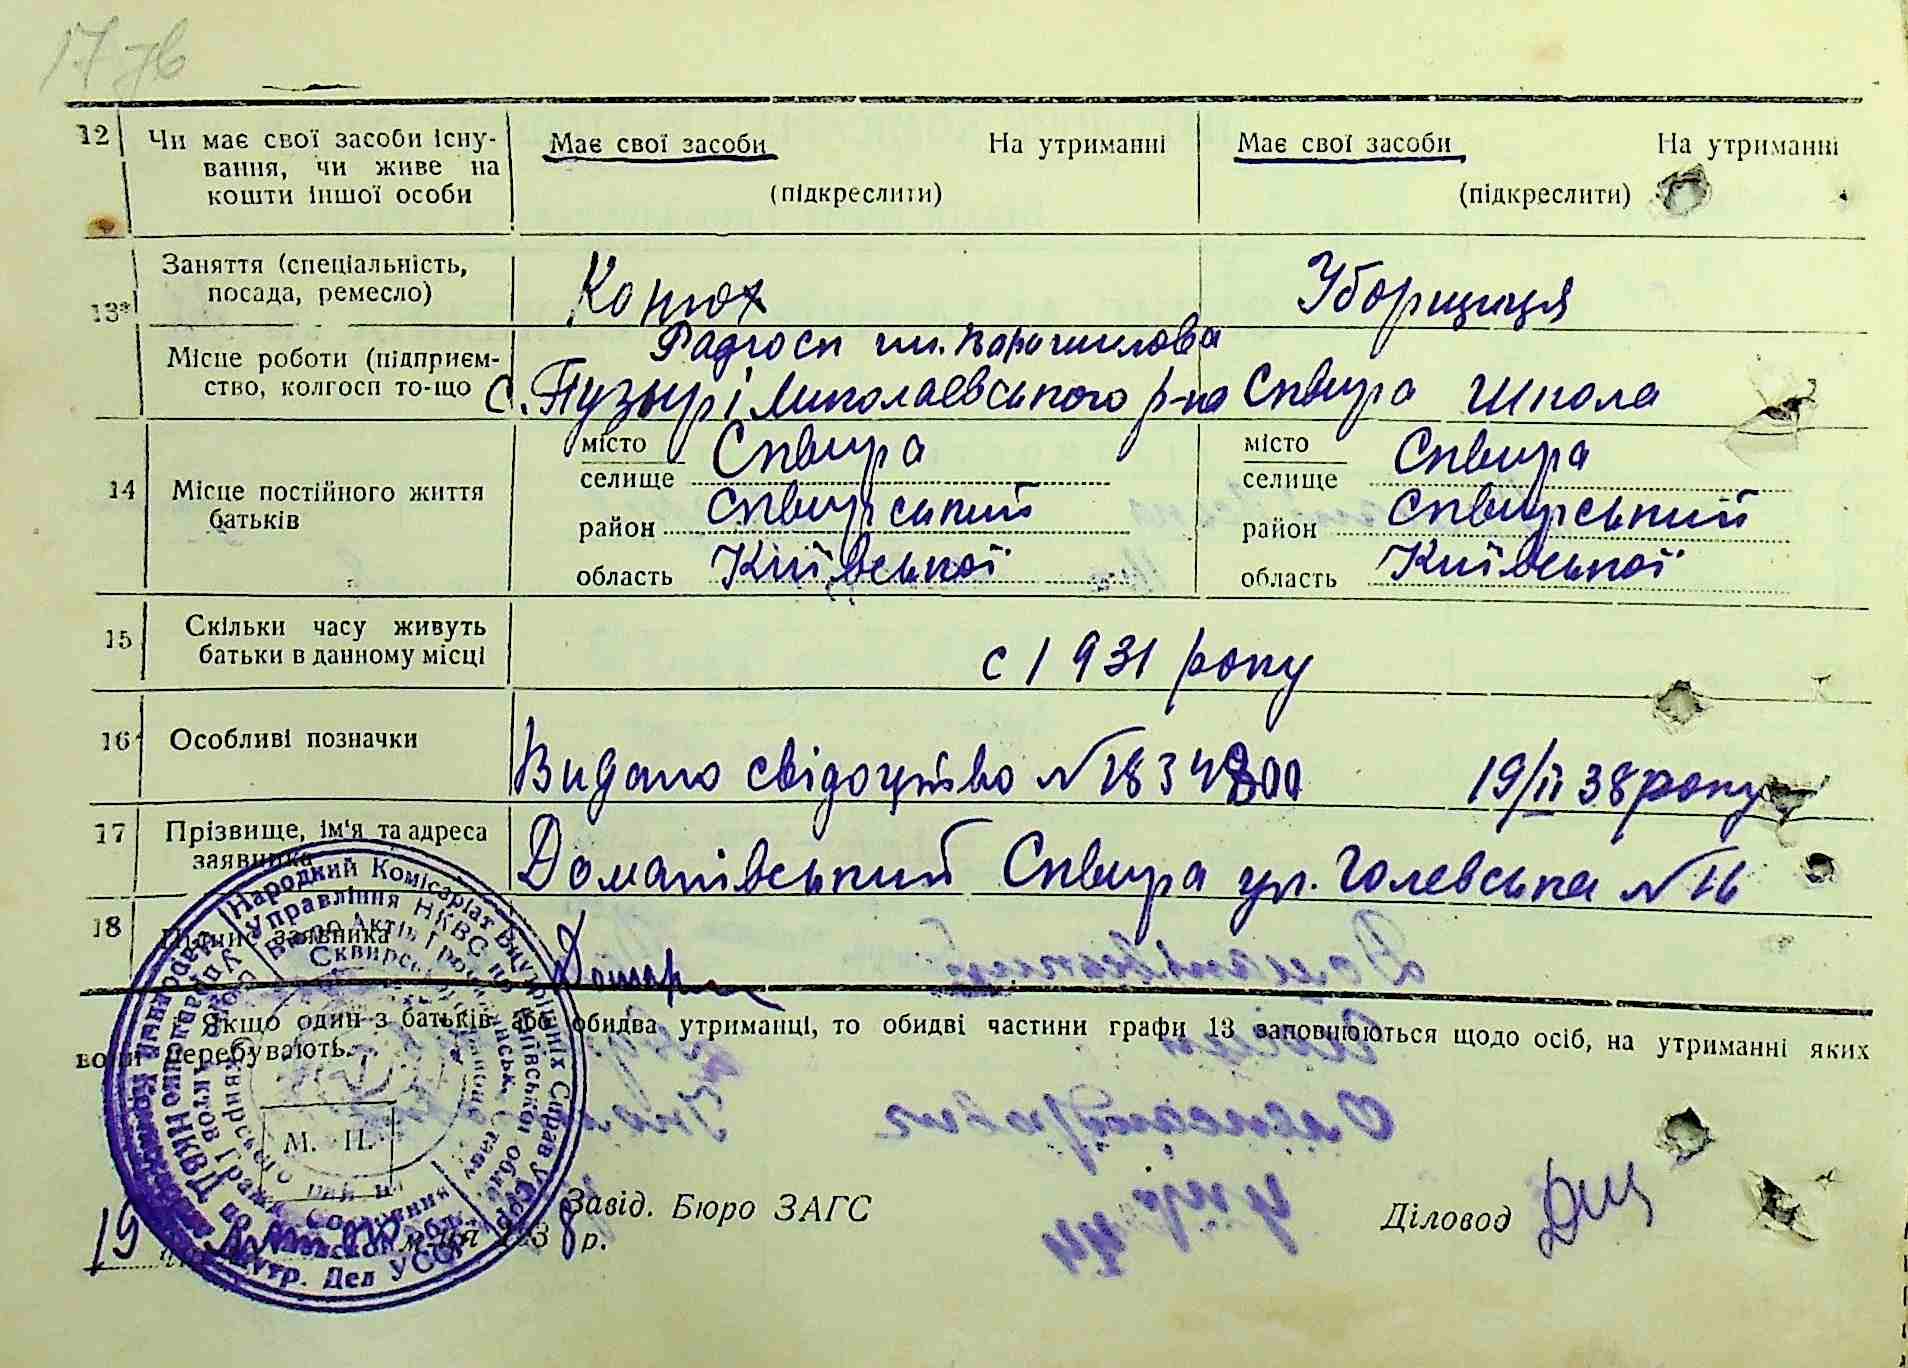 17 зв
12 Чи має свої засоби існу-
вання, чи живе на
кошти іншої особи
Має свої засоби На утриманні
(підкреслити)
Має свої засоби На утриманні
(підкреслити)
13* Заняття (спеціальність,
посада, ремесло)
Конюх
Уборщиця
Місце роботи (підприєм-
ство, колгосп то-що
Радгосп им. Ворошилова
с. Пузырі Миколаевського р-на
Сквира школа
14 Місце постійного життя
батьків
місто
селище Сквира
район Сквирський
область Київської
місто
селище Сквира
район Сквирський
область Київської
15 Скільки часу живуть
батьки в данному місці
с 1931 року
16 Особливі позначки
Видано свідоцтво № 19/II 38 року
17 Прізвище, ім'я та адреса
заявника
Доманівський Сквира ул. №16
18 Підпис заявника
Якщо один з батьків або обидва утриманці, то обидві частини графи 13 заповнюються щодо осіб, на утриманні яких
вони перебувають.
Народний Комісаріат Внутрішніх Справ УСРР
Управління НКВС по Київській області
Бюро Актів Громадянськ. Стану
М. П.
19 м-ця 1938 р.
Завід. Бюро ЗАГС
Діловод